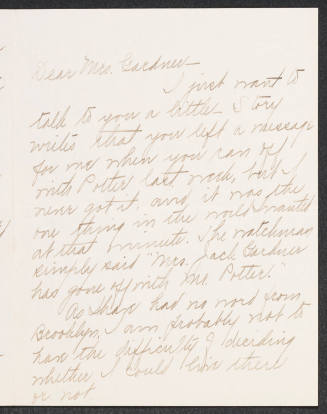 Dear Mrs. Gardner—
I just want to
talk to you a little. Story
writes that you left a message
for me when you ran off
with Potter last week, but I
never got it. and it was the
one thing in the world I wanted
at that minute. The watchman
simply said "Mrs. Jack Gardner
has gone off with Mr. Potter."
As I have had no word from
Brooklyn, I am probably not to
have the difficulty of deciding
whether I could live there
or not